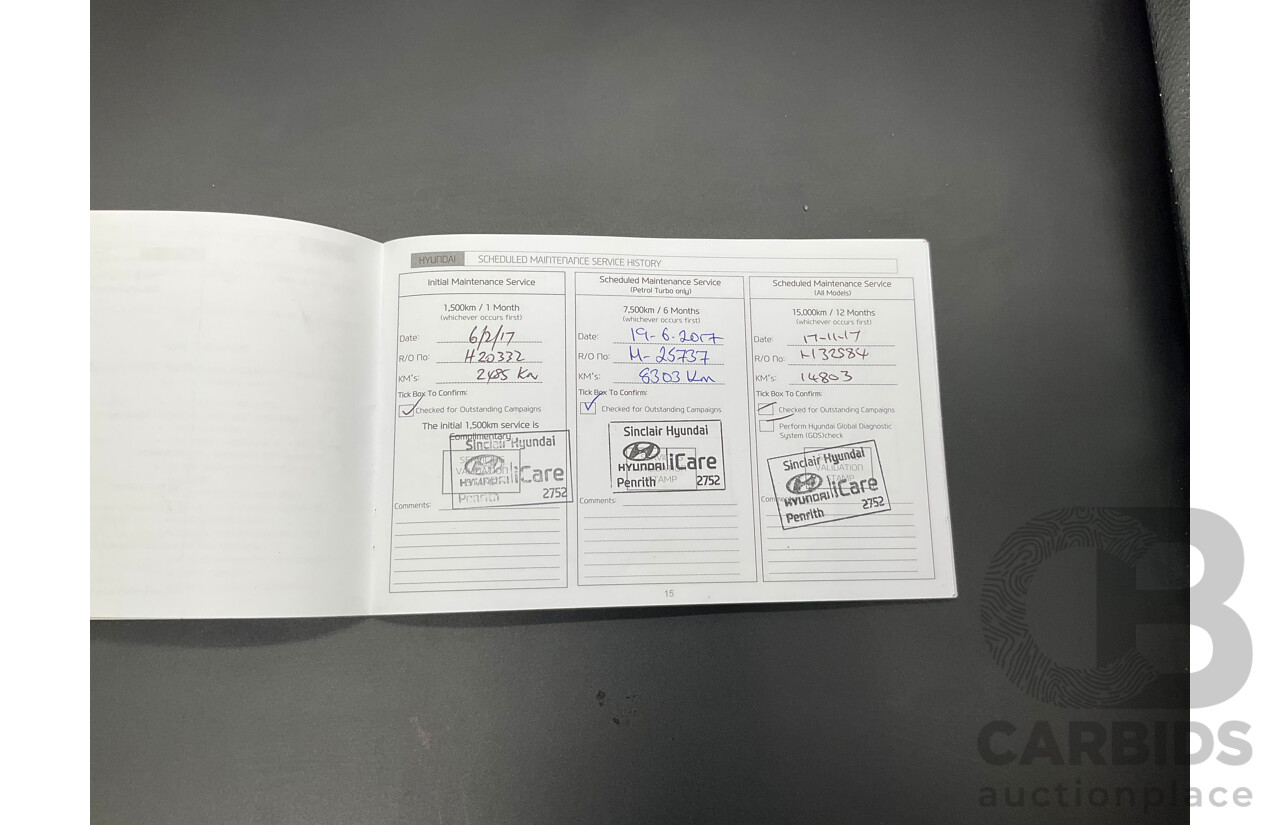 HYUNDAI SCHEDULED MAINTENANCE SERVICE HISTORY
Initial Maintenance Service
1,500km / 1 Month
(whichever occurs first)
Date: 6/2/17
R/O No: H20332
KM's: 2485 Km
Tick Box To Confirm:
Checked for Outstanding Campaigns
The initial 1,500km service is
Complimentary
Sinclair Hyundai
VALIDATION
HYUNDAI iCare
Penrith 2752
Comments:
Scheduled Maintenance Service
(Petrol Turbo only)
7,500km / 6 Months
(whichever occurs first)
Date: 19-6-2017
R/O No: H-25737
KM's: 8303 Km
Tick Box To Confirm:
Checked for Outstanding Campaigns
Sinclair Hyundai
HYUNDAI iCare
Penrith STAMP 2752
Comments:
Scheduled Maintenance Service
(All Models)
15,000km / 12 Months
(whichever occurs first)
Date: 17-11-17
R/O No: H132584
KM's: 14803
Tick Box To Confirm:
Checked for Outstanding Campaigns
Perform Hyundai Global Diagnostic
System (GDS)check
Sinclair Hyundai
VALIDATION
STAMP
HYUNDAI iCare
Penrith 2752
15
CB
CARBIDS
auctionplace